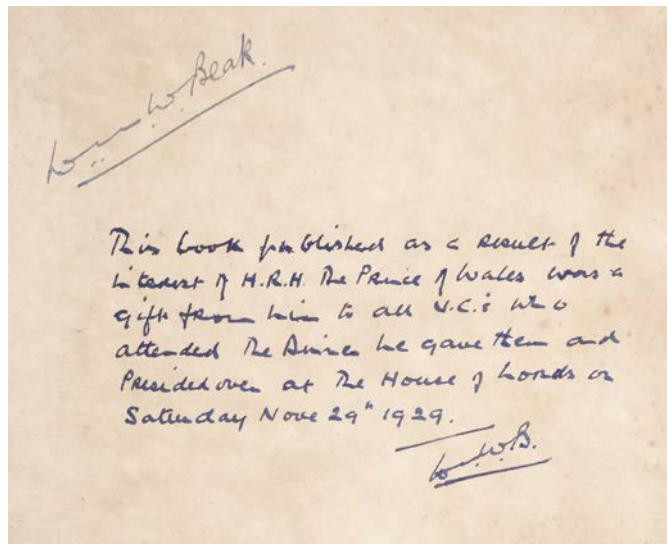 W. Beak.
This book published as a result of the
interest of H.R.H. The Prince of Wales was a
gift from him to all V.C.s who
attended The Dinner he gave them and
Presided over at The House of Lords on
Saturday Nove 29" 1929.
W.B.